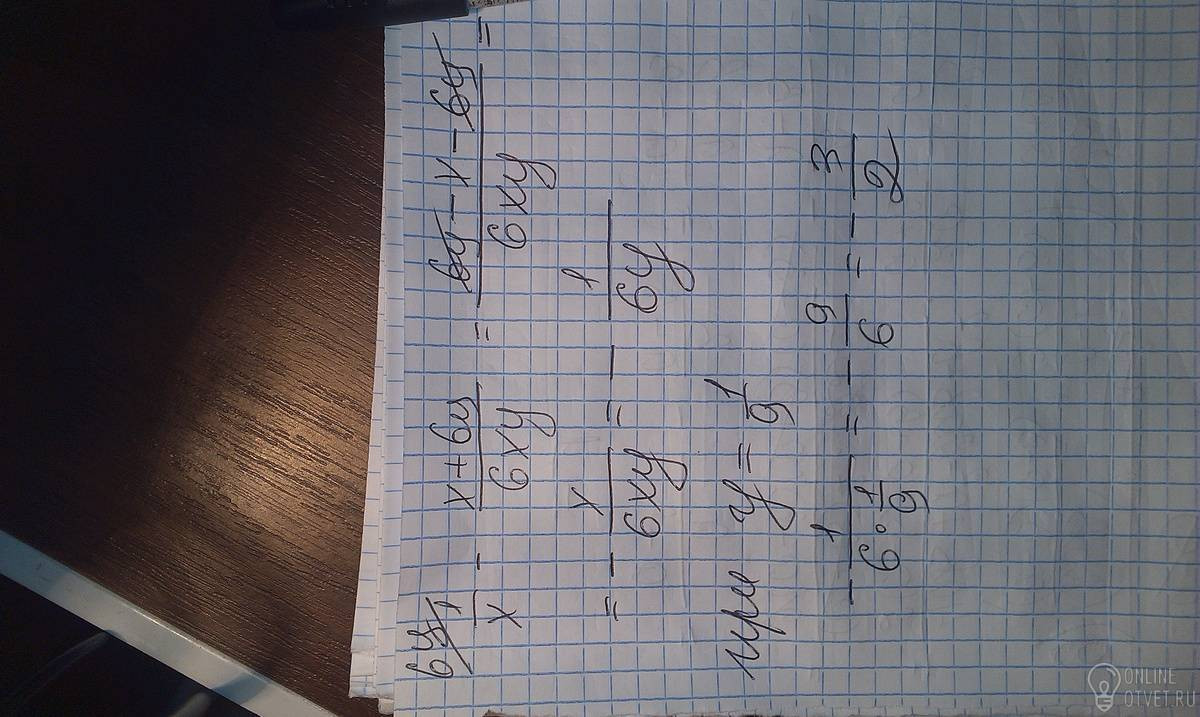 6y\ 1/x - (x + 6y)/(6xy) = (6y - x - 6y)/(6xy) =
= - x/(6xy) = - 1/(6y)
при y = 1/9
- 1/(6 · 1/9) = - 9/6 = - 3/2
ONLINE
OTVET.RU